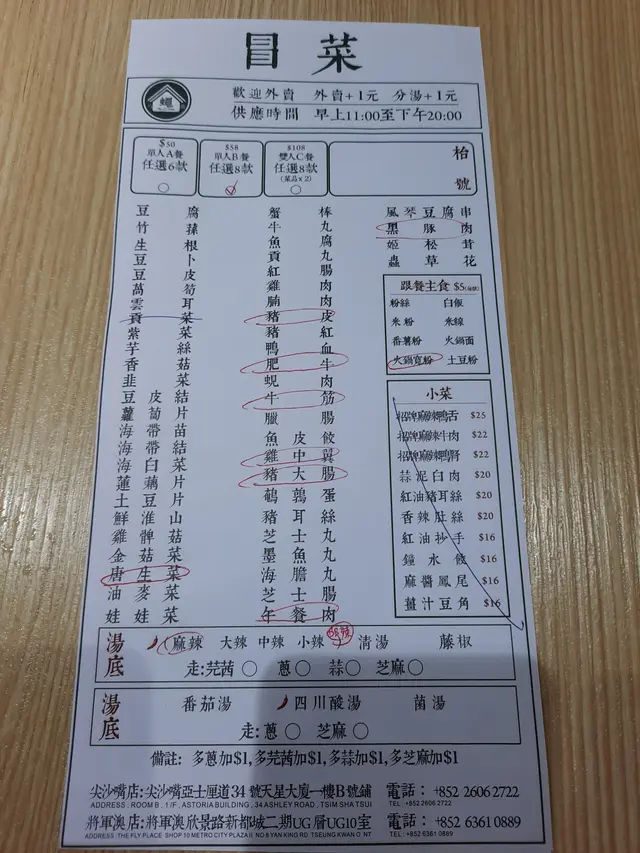 冒菜
歡迎外賣 外賣+1元 分湯+1元
供應時間 早上11:00至下午20:00
$50
單人A餐
任選6款
$58
單人B餐
任選8款
$108
雙人C餐
任選8款
(菜品x2)
枱號
豆腐
竹
生根
豆卜
豆皮
萵筍
雲耳
貢菜
紫菜
芋絲
香菇
韭菜
豆皮結
蘿蔔片
海帶苗
海帶結
海白菜
蓮藕片
土豆片
鮮淮山
雞髀菇
金菇菜
唐生菜
油麥菜
娃娃菜
蟹棒
牛丸
魚腐
貢丸
紅腸
雞肉
腩肉
豬皮
豬紅
鴨血
肥牛
蜆肉
牛筋
臘腸
魚皮餃
雞中翼
豬大腸
鵪鶉蛋
豬耳絲
芝士丸
墨魚丸
海膽丸
芝士腸
午餐肉
風琴豆腐串
黑豚肉
姬松茸
蟲草花
跟餐主食 $5
粉絲 白飯
米粉 米線
番薯粉 火鍋面
火鍋寬粉 土豆粉
小菜
招牌麻辣鴨舌 $25
招牌麻辣牛肉 $22
招牌麻辣鴨腎 $22
蒜泥白肉 $20
紅油豬耳絲 $20
香辣肚絲 $20
紅油抄手 $16
鐘水餃 $16
麻醬鳳尾 $16
薑汁豆角 $16
湯底
麻辣 大辣 中辣 小辣 清湯 藤椒
走:芫茜 蔥 蒜 芝麻
湯底
番茄湯 四川酸湯 菌湯
走:蔥 芝麻
備註: 多蔥加$1,多芫茜加$1,多蒜加$1,多芝麻加$1
尖沙嘴店:尖沙嘴亞士厘道34號天星大廈一樓B號鋪 電話: +852 2606 2722
ADDRESS: ROOM B, 1/F, ASTORIA BUILDING, 34 ASHLEY ROAD, TSIM SHA TSUI TEL: +852 2606 2722
將軍澳店:將軍澳欣景路新都城二期UG層UG10室 電話: +852 6361 0889
ADDRESS: THE FLY PLACE SHOP 10 METRO CITY PLAZA II NO 8 YAN KING RD TSEUNG KWAN O NT TEL: +852 6361 0889